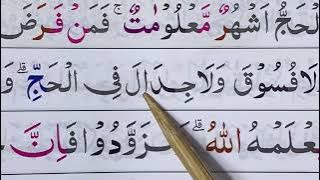 لْحَجُّ اَشْهُرٌ مَّعْلُوْمٰتٌ ۚ فَمَنْ فَرَضَ
لَا فُسُوْقَ وَلَا جِدَالَ فِى الْحَجِّ ؕ وَ
عْلَمْهُ اللّٰهُ ؕ تَزَوَّدُوْا فَاِنَّ